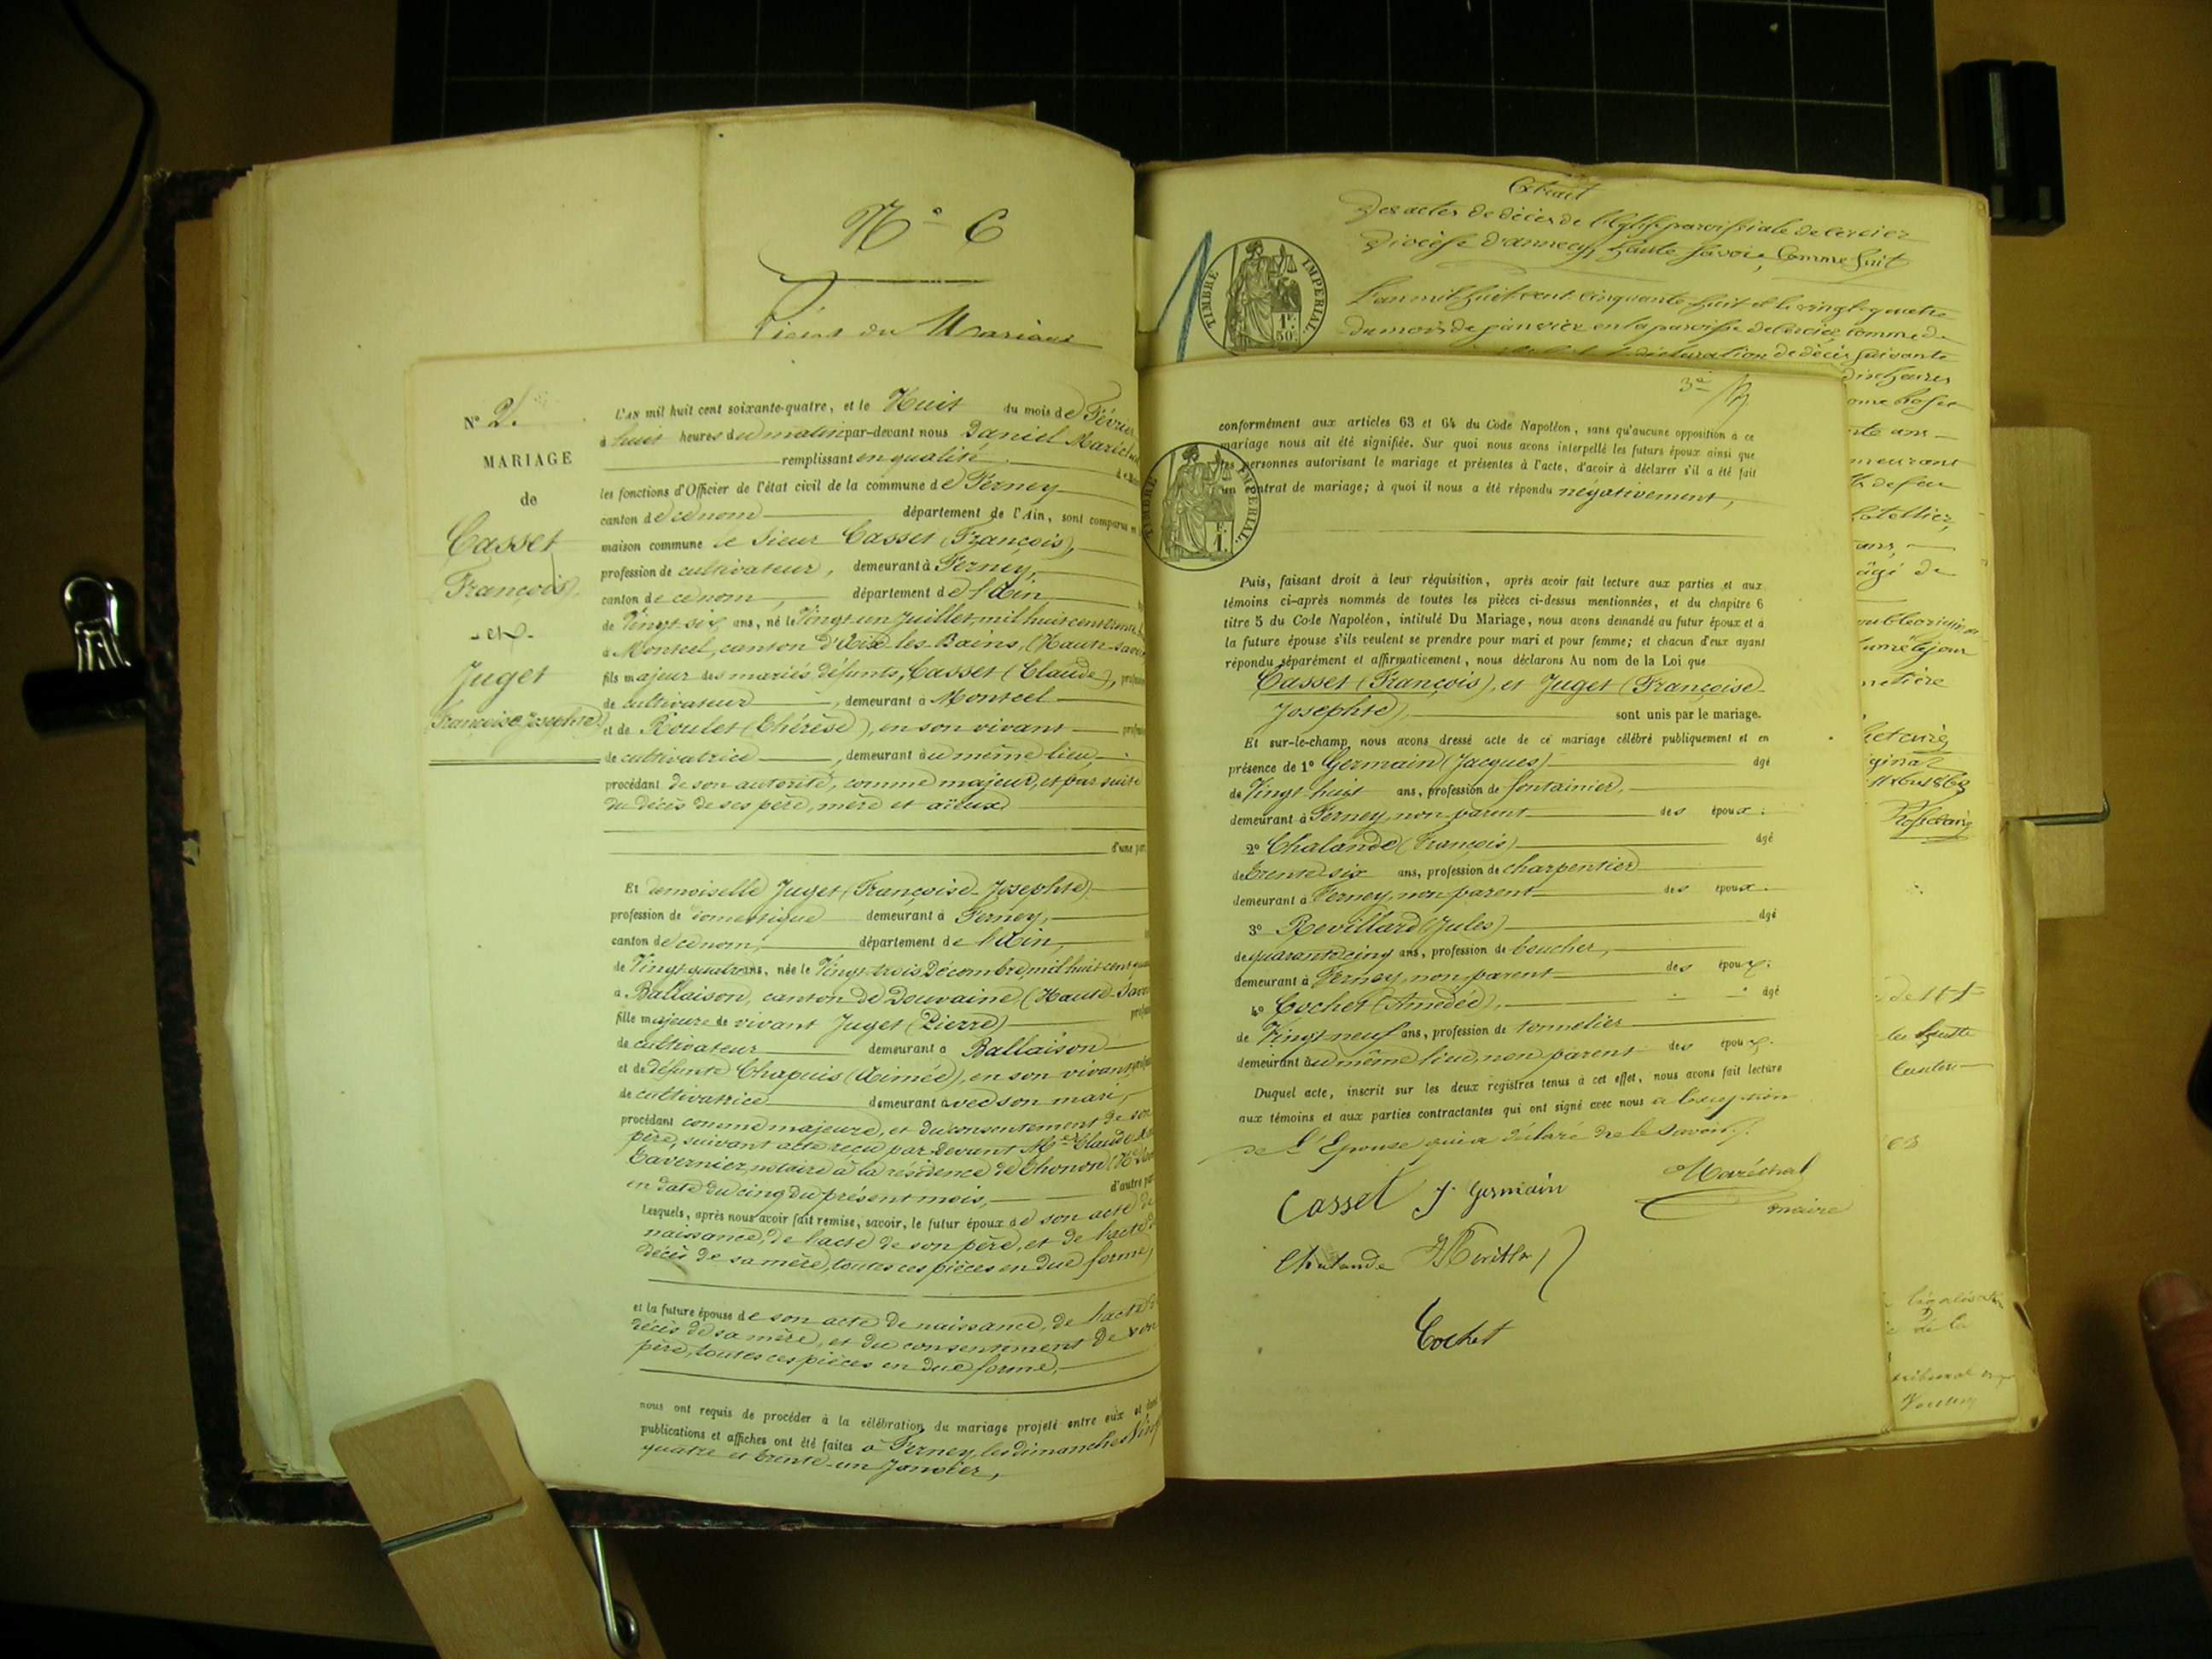 N° 6
Pièces du Mariage
N° 2.
MARIAGE
de
Casset
(François).
-et-
Juget
(Françoise Josephte)
L'AN mil huit cent soixante-quatre, et le Huit du mois de Février
à huit heures du matin par-devant nous Daniel Maréchal
remplissant en qualité
les fonctions d'Officier de l'état civil de la commune de Ferney
canton de ce nom département de l'Ain, sont comparus en
maison commune le Sieur Casset (François),
profession de cultivateur, demeurant à Ferney,
canton de ce nom, département de l'Ain
de Vingt-six ans, né le Vingt-un Juillet mil huit cent trente
à Montcel, canton d'Aix-les-Bains, (Haute-Savoie
fils majeur des mariés défunts, Casset (Claude),
de cultivateur, demeurant à Montcel
et de Roulet (Thérèse), en son vivant
de cultivatrice, demeurant au même lieu,
procédant de son autorité, comme majeur, et par suite
du décès de ses père, mère et aïeux
d'une part
Et demoiselle Juget (Françoise-Josephte)
profession de domestique demeurant à Ferney,
canton de ce nom, département de l'Ain,
de Vingt-quatre ans, née le Vingt-trois Décembre mil huit cent
à Ballaison, canton de Douvaine (Haute-Savoie
fille majeure de vivant Juget (Pierre)
de cultivateur demeurant à Ballaison
et de défunte Chapuis (Aimée), en son vivant
de cultivatrice demeurant avec son mari,
procédant comme majeure, et du consentement de son
père, suivant acte reçu par devant Me Claude
Tavernier, notaire à la résidence de Thonon (Hte
en date du cinq du présent mois, d'autre part
Lesquels, après nous avoir fait remise, savoir, le futur époux de son acte de
naissance, de l'acte de son père, et de l'acte de
décès de sa mère, toutes ces pièces en due forme,
et la future épouse de son acte de naissance, de l'acte de
décès de sa mère, et du consentement de son
père, toutes ces pièces en due forme,
nous ont requis de procéder à la célébration du mariage projeté entre eux et dont
publications et affiches ont été faites à Ferney, les dimanches Vingt
quatre et trente-un Janvier,
Extrait
Des actes de décès de l'Eglise paroissiale de Cercier
Diocèse d'annecy, haute Savoie, Comme suit
L'an mil huit cent cinquante huit et le vingt quatre
du mois de janvier en la paroisse de Cercier, commune de
déclaration de décès suivante
TIMBRE IMPERIAL.
1F.
50c
3e
conformément aux articles 63 et 64 du Code Napoléon, sans qu'aucune opposition à ce
mariage nous ait été signifiée. Sur quoi nous avons interpellé les futurs époux ainsi que
les personnes autorisant le mariage et présentes à l'acte, d'avoir à déclarer s'il a été fait
un contrat de mariage; à quoi il nous a été répondu négativement,
TIMBRE IMPERIAL.
Puis, faisant droit à leur réquisition, après avoir fait lecture aux parties et aux
témoins ci-après nommés de toutes les pièces ci-dessus mentionnées, et du chapitre 6
titre 5 du Code Napoléon, intitulé Du Mariage, nous avons demandé au futur époux et à
la future épouse s'ils veulent se prendre pour mari et pour femme; et chacun d'eux ayant
répondu séparément et affirmativement, nous déclarons Au nom de la Loi que
Casset (François), et Juget (Françoise-
Josephte), sont unis par le mariage.
Et sur-le-champ nous avons dressé acte de ce mariage célébré publiquement et en
présence de 1° Germain (Jacques) âgé
de Vingt-huit ans, profession de fontainier,
demeurant à Ferney, non parent des époux.
2° Chalande (François) âgé
de trente-six ans, profession de charpentier
demeurant à Ferney, non parent des époux.
3° Revillard (Jules) âgé
de quarante-cinq ans, profession de boucher,
demeurant à Ferney, non parent des époux.
4° Cochet (Amédée), âgé
de Vingt-neuf ans, profession de tonnelier
demeurant au même lieu, non parent des époux.
Duquel acte, inscrit sur les deux registres tenus à cet effet, nous avons fait lecture
aux témoins et aux parties contractantes qui ont signé avec nous à l'exception
de L'Epouse qui a déclaré ne le savoir.
Casset J. Germain Maréchal
maire
Chalande
Cochet